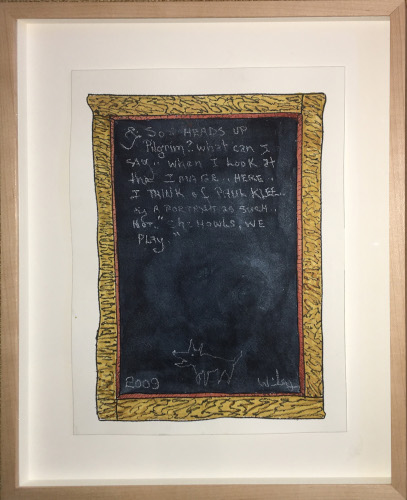 & So.. HEADS UP
Pilgrim? What can I
SAY.. when I Look at
the IMAGE.. HERE.
I THINK of PAUL KLEE..
A PORTRAIT AS SUCH..
HOWLS, WE
PLAY."
2009 Wiley